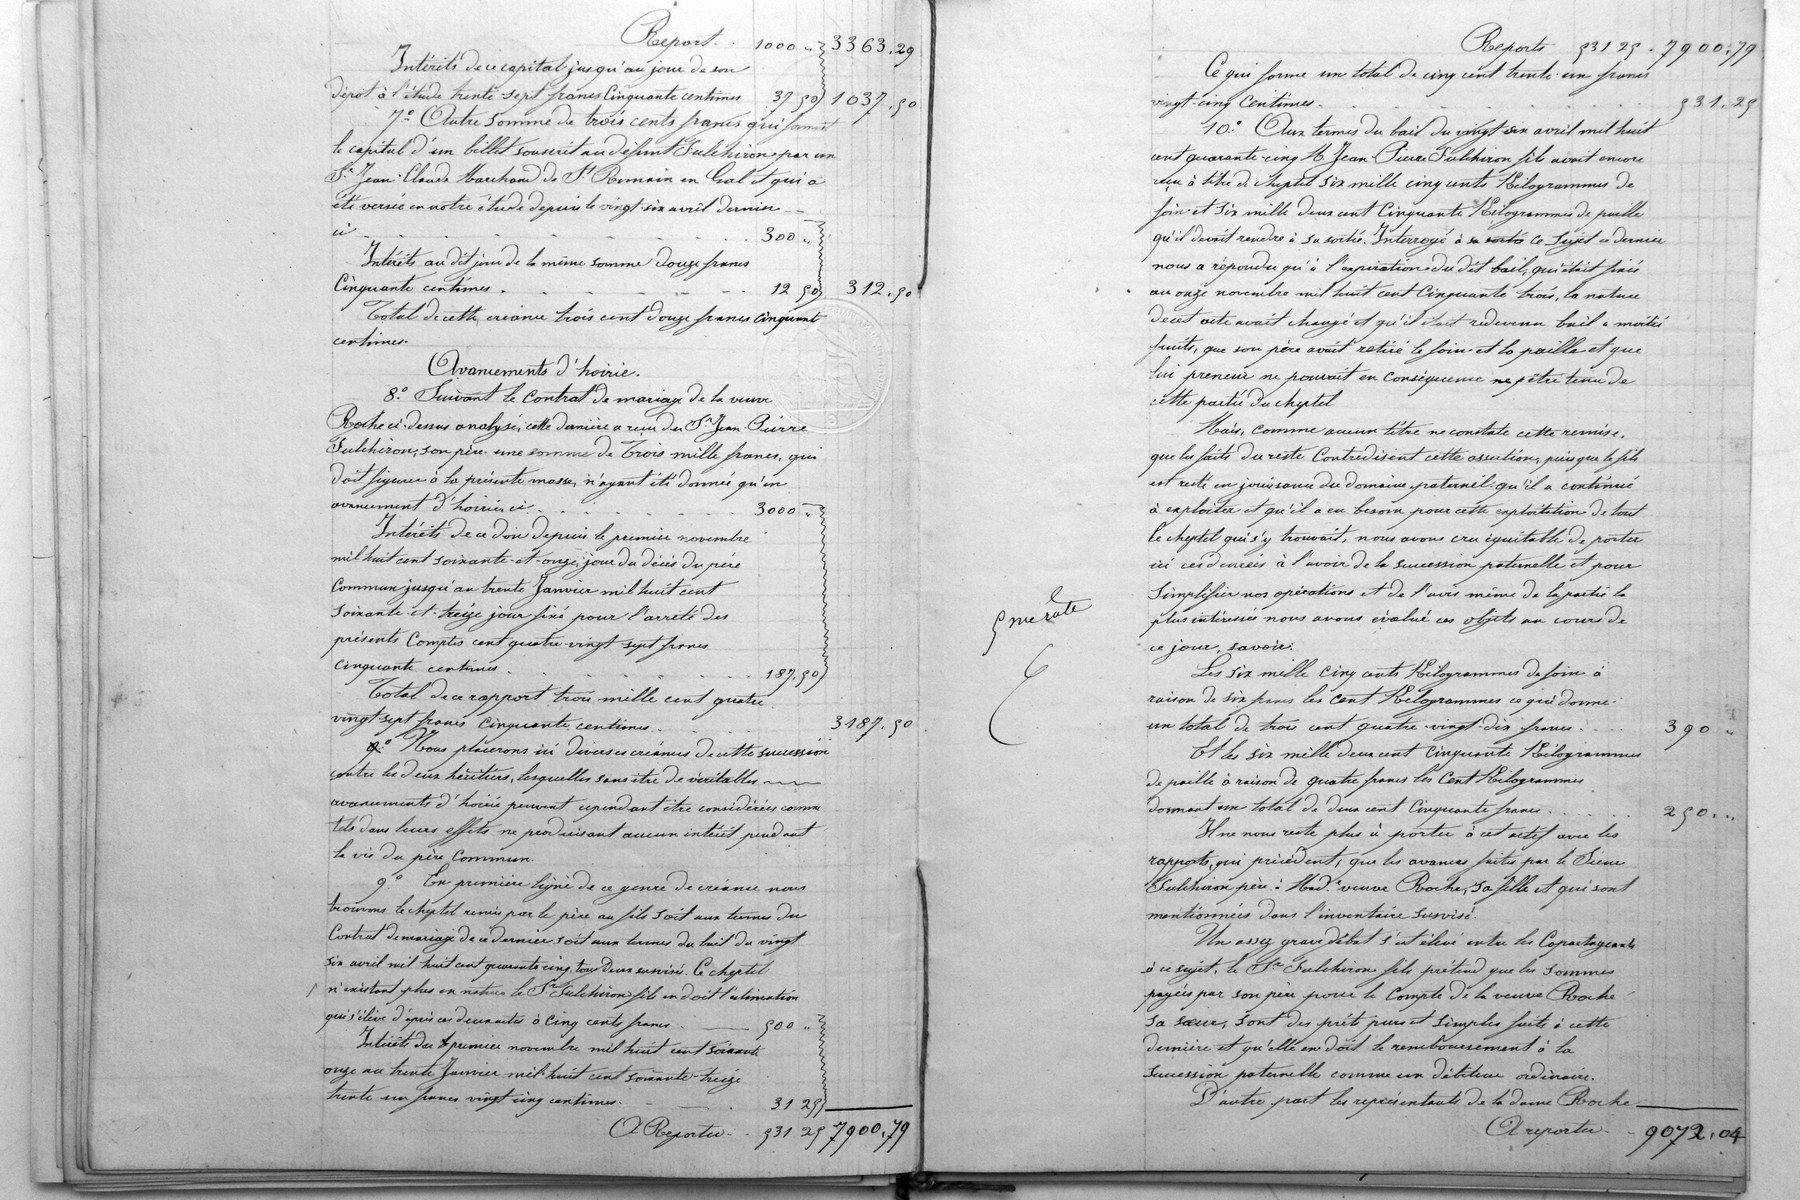 Report. . 1000 " 3363.29
Intérêts de ce capital jusqu'au jour de son
dépôt à l'étude trente sept francs cinquante centimes 37 50 1037.50
7.° Autre somme de trois cents francs qui formait
le capital d'un billet souscrit au défunt Fulchiron par un
Sr Jean-Claude Marchand de St Romain en Gal et qui a
été versée en notre étude depuis le vingt-six avril dernier
ci . . . . . . . . 300 "
Intérêts au dit jour de la même somme douze francs
cinquante centimes . . . . . 12 50 312.50
Total de cette créance trois cent douze francs cinquante
centimes.
Avancements d'hoirie.
8.° Suivant le contrat de mariage de la veuve
Roche ci-dessus analysé, cette dernière a reçu du Sr Jean-Pierre
Fulchiron, son père une somme de Trois mille francs, qui
doit figurer à la présente masse, n'ayant été donnée qu'en
avancement d'hoirie, ci . . . . . 3000 "
Intérêts de ce don depuis le premier novembre
mil huit cent soixante-et-onze, jour du décès du père
commun jusqu'au trente Janvier mil huit cent
soixante-et-treize jour fixé pour l'arrêté des
présents comptes cent quatre-vingt-sept francs
cinquante centimes . . . . . 187.50
Total de ce rapport trois mille cent quatre
vingt sept francs cinquante centimes . . . 3187.50
9.° Nous placerons ici diverses créances de cette succession
contre les deux héritiers, lesquelles sans être de véritables
avancements d'hoirie peuvent cependant être considérées comme
tels dans leurs effets ne produisant aucun intérêt pendant
la vie du père commun.
9° En première ligne de ce genre de créance nous
trouvons le cheptel remis par le père au fils soit aux termes du
contrat de mariage de ce dernier soit aux termes du bail du vingt
six avril mil huit cent quarante cinq, tous deux susvisés. Ce cheptel
n'existant plus en nature le Sr Fulchiron fils en doit l'estimation
qui s'élève d'après ces deux actes à cinq cents francs . 500 "
Intérêts du premier novembre mil huit cent soixante
onze au trente Janvier mil huit cent soixante-treize
trente un francs vingt cinq centimes. 31 25
A Reporter . 531 25 7900.79
Reports 531 25 . 7900.79
Ce qui forme un total de cinq cent trente un francs
vingt-cinq centimes . . . . . . 531.25
10.° Aux termes du bail du vingt six avril mil huit
cent quarante-cinq M. Jean-Pierre Fulchiron fils avait encore
reçu à titre de cheptel six mille cinq cents Kilogrammes de
foin et six mille deux cent cinquante Kilogrammes de paille
qu'il devait rendre à sa sortie. Interrogé à ce sujet ce dernier
nous a répondu qu'à l'expiration du dit bail, qui était fixée
au onze novembre mil huit cent cinquante trois, la nature
de cet acte avait changé et qu'il était redevenu bail à moitié
fruits, que son père avait retiré le foin et la paille et que
lui preneur ne pouvait en conséquence être tenu de
cette partie du cheptel
Mais, comme aucun titre ne constate cette remise,
que les faits du reste contredisent cette assertion, puisque le fils
est resté en jouissance du domaine paternel qu'il a continué
à exploiter et qu'il a eu besoin pour cette exploitation de tout
le cheptel qui s'y trouvait, nous avons cru équitable de porter
ici ces denrées à l'avoir de la succession paternelle et pour
simplifier nos opérations et de l'avis même de la partie la
plus intéressée nous avons évalué ces objets au cours de
ce jour, savoir:
Les six mille cinq cents Kilogrammes de foin à
raison de six francs les cent Kilogrammes ce qui donne
un total de trois cent quatre-vingt-dix francs . . . 390 "
Et les six mille deux cent cinquante Kilogrammes
de paille à raison de quatre francs les cent Kilogrammes
donnant un total de deux cent cinquante francs . . . 250 "
Il ne nous reste plus à porter à cet actif avec les
rapports, qui précèdent, que les avances faites par le Sieur
Fulchiron père à Made veuve Roche, sa fille et qui sont
mentionnées dans l'inventaire susvisé.
Un assez grave débat s'est élevé entre les Copartageants
à ce sujet, le Sr Fulchiron fils prétend que les sommes
payées par son père pour le compte de la veuve Roche
sa sœur, sont des prêts purs et simples faits à cette
dernière et qu'elle en doit le remboursement à la
succession paternelle comme un débiteur ordinaire.
D'autre part les représentants de la dame Roche
A reporter . 9072.04